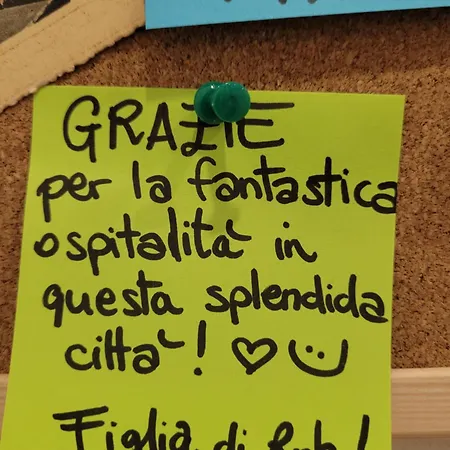 GRAZIE
per la fantastica
ospitalità in
questa splendida
città! ♡ :)
Figlia di